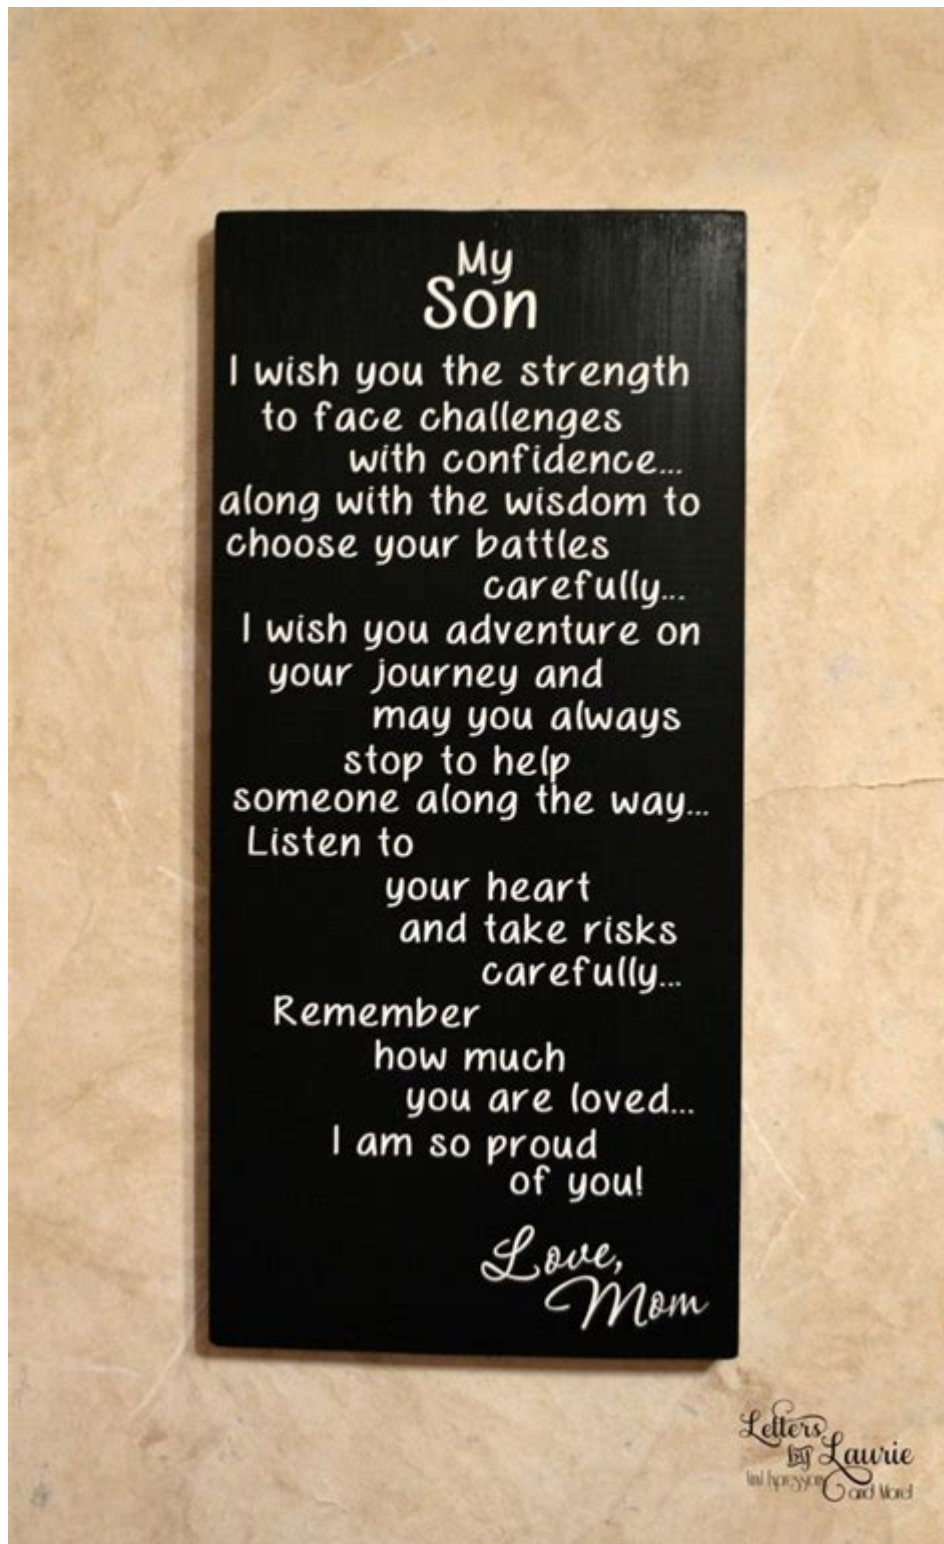 My
Son
I wish you the strength
to face challenges
with confidence...
along with the wisdom to
choose your battles
carefully...
I wish you adventure on
your journey and
may you always
stop to help
someone along the way...
Listen to
your heart
and take risks
carefully...
Remember
how much
you are loved...
I am so proud
of you!
Love,
Mom
Letters
by Laurie
and More!